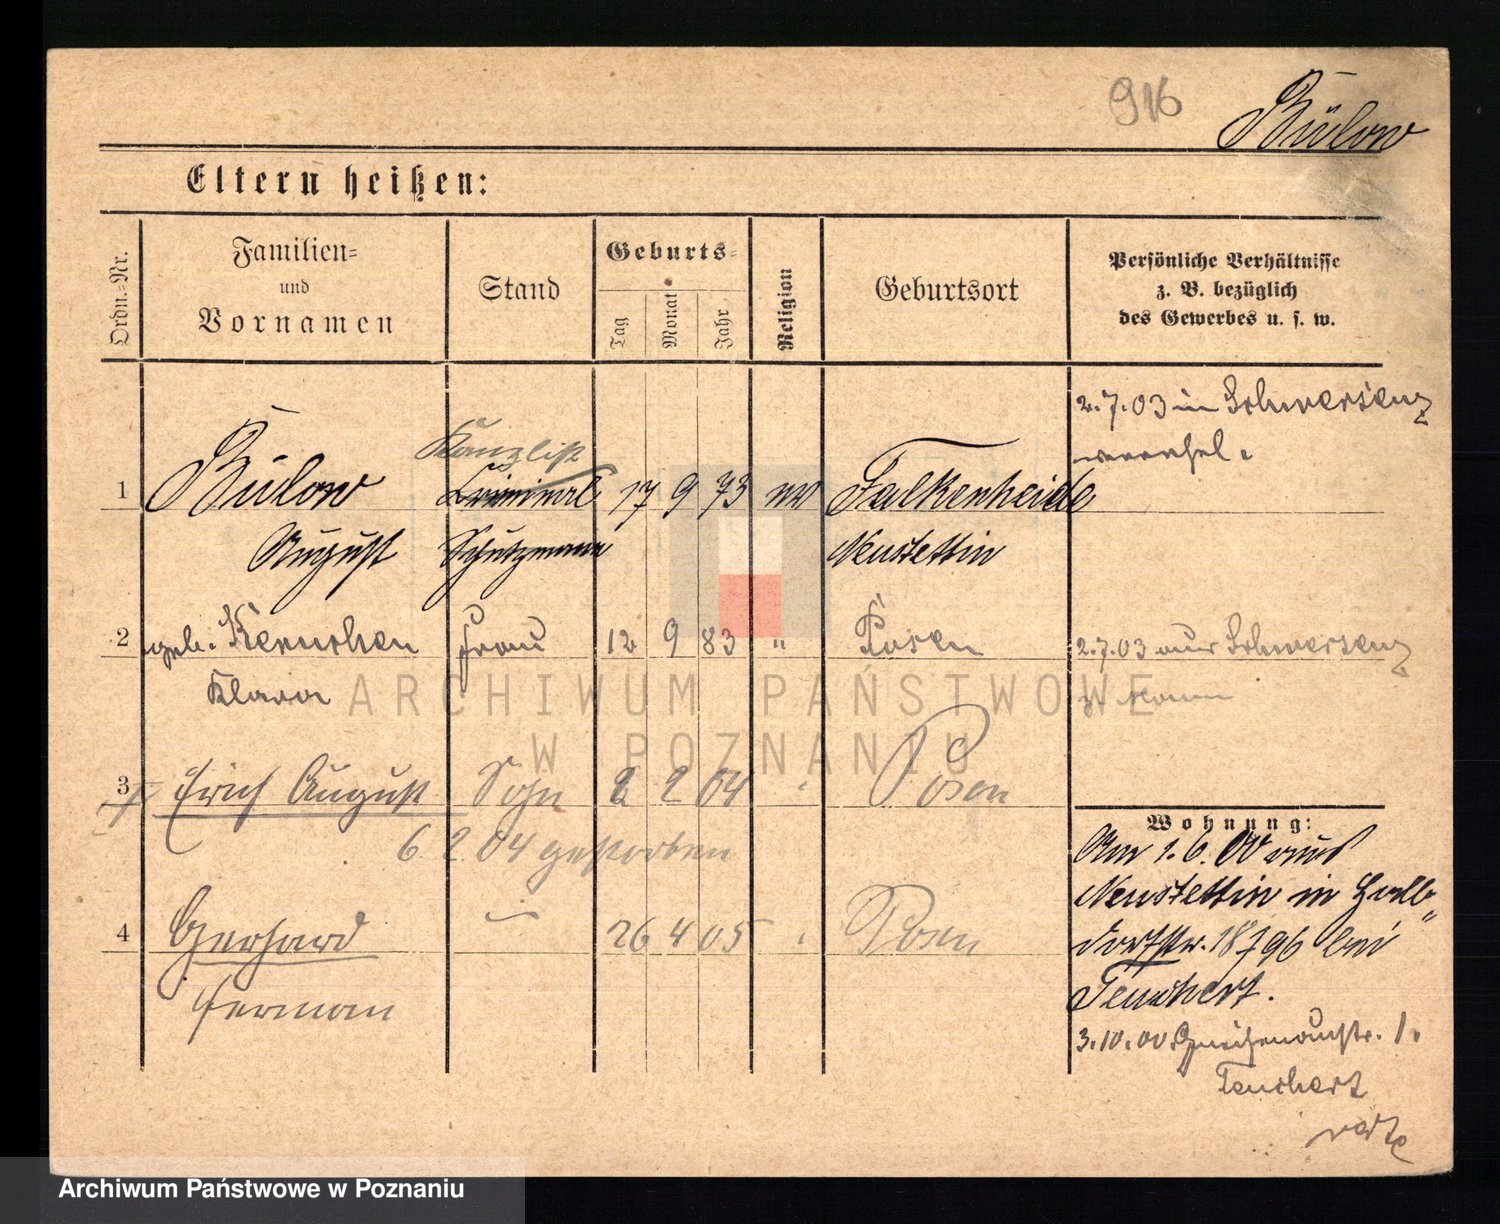 916
Bülow
Eltern heißen:
Ordn.-Nr.
Familien-
und
Vornamen
Stand
Geburts-
Tag
Monat
Jahr
Religion
Geburtsort
Persönliche Verhältnisse
z. B. bezüglich
des Gewerbes u. s. w.
2.7.03 in Schwersenz
verehel.
Kanzlist
1 Bülow Criminal 17 9 73 ev Falkenheide
August Schutzmann Neustettin
2 geb. Frau 12 9 83 " Posen 2.7.03 aus Schwersenz
Klara z. Mann
3 Erich August Sohn 2 2 04 Posen
6 2 04 gestorben
Wohnung:
Am 1.6.00 aus
Neustettin in Halb
dorfstr. 18 bei
4 Gerhard 26 4 05 Posen
Teuchert.
Herman
3.10.00 Gneisenaustr. 1.
Teuchert
ARCHIWUM PAŃSTWOWE
W POZNANIU
Archiwum Państwowe w Poznaniu